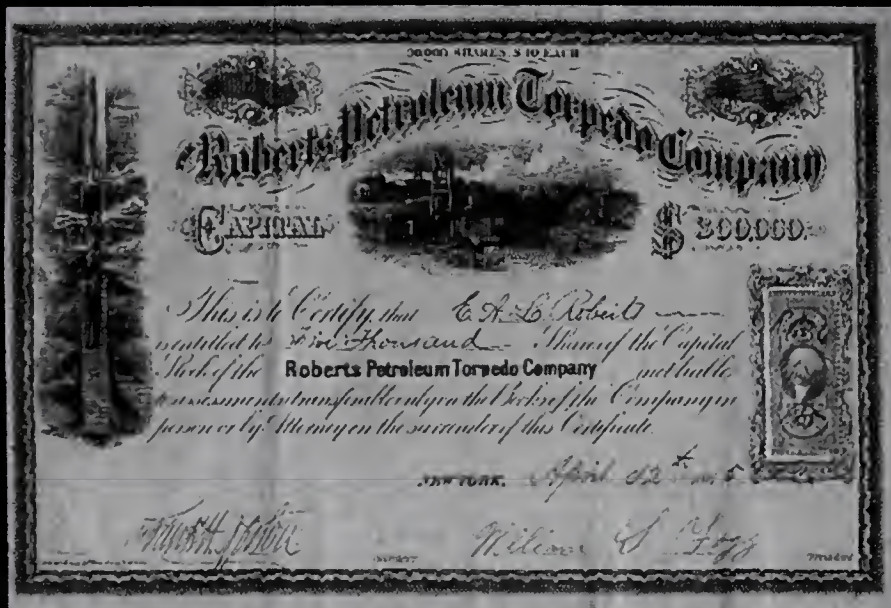 30,000 SHARES $10 EACH
Roberts Petroleum Torpedo Company
CAPITAL $300,000.
This is to Certify, that E. A. L. Roberts
is entitled to Five Thousand Shares of the Capital
Stock of the Roberts Petroleum Torpedo Company not liable
to assessment transferable only on the Books of the Company in
person or by Attorney on the surrender of this Certificate.
NEW YORK, April